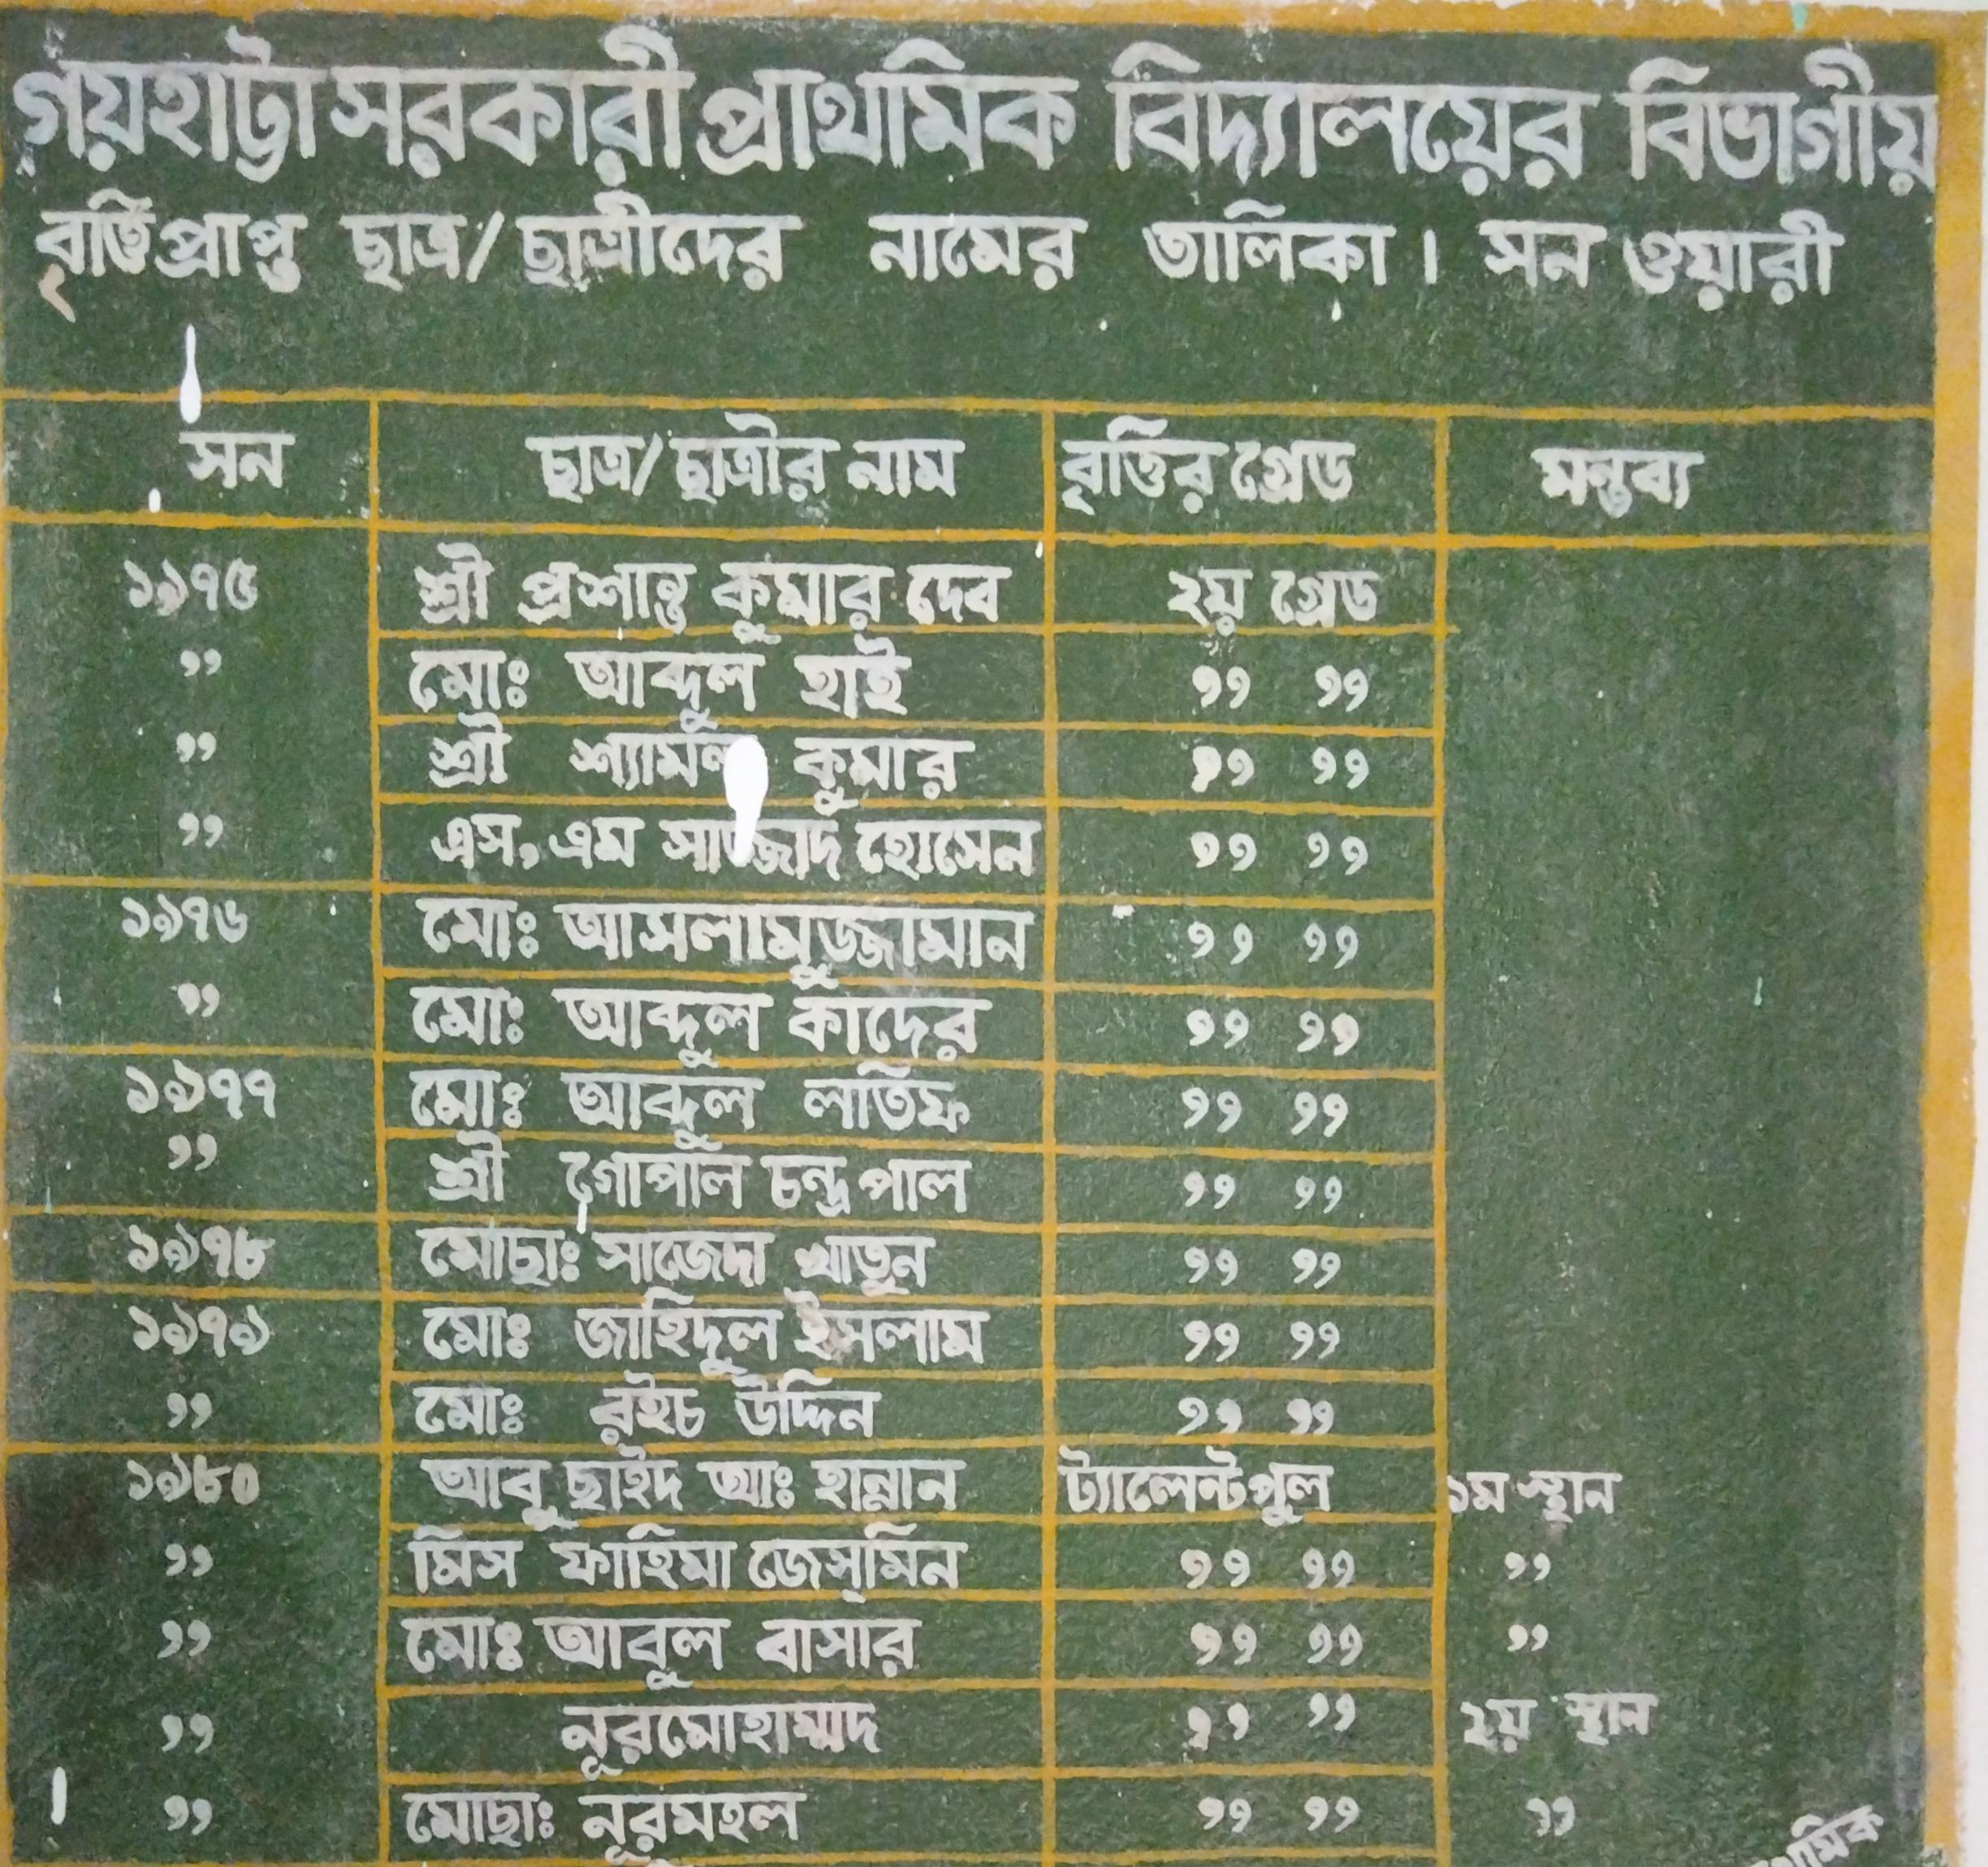 গয়হাট্টা সরকারী প্রাথমিক বিদ্যালয়ের বিভাগীয়
বৃত্তিপ্রাপ্ত ছাত্র/ছাত্রীদের নামের তালিকা। সন ওয়ারী
সন ছাত্র/ছাত্রীর নাম বৃত্তির গ্রেড মন্তব্য
১৯৭৫ শ্রী প্রশান্ত কুমার দেব ২য় গ্রেড
" মোঃ আব্দুল হাই " "
" শ্রী শ্যামল কুমার " "
" এস, এম সাজ্জাদ হোসেন " "
১৯৭৬ মোঃ আসলামুজ্জামান " "
" মোঃ আব্দুল কাদের " "
১৯৭৭ মোঃ আব্দুল লতিফ " "
" শ্রী গোপাল চন্দ্র পাল " "
১৯৭৮ মোছাঃ সাজেদা খাতুন " "
১৯৭৯ মোঃ জাহিদুল ইসলাম " "
" মোঃ রইচ উদ্দিন " "
১৯৮০ আবু ছাইদ আঃ হান্নান ট্যালেন্টপুল ১ম স্থান
" মিস ফাহিমা জেস্‌মিন " " "
" মোঃ আবুল বাসার " " "
" নূরমোহাম্মদ " " ২য় স্থান
" মোছাঃ নূরমহল " " "